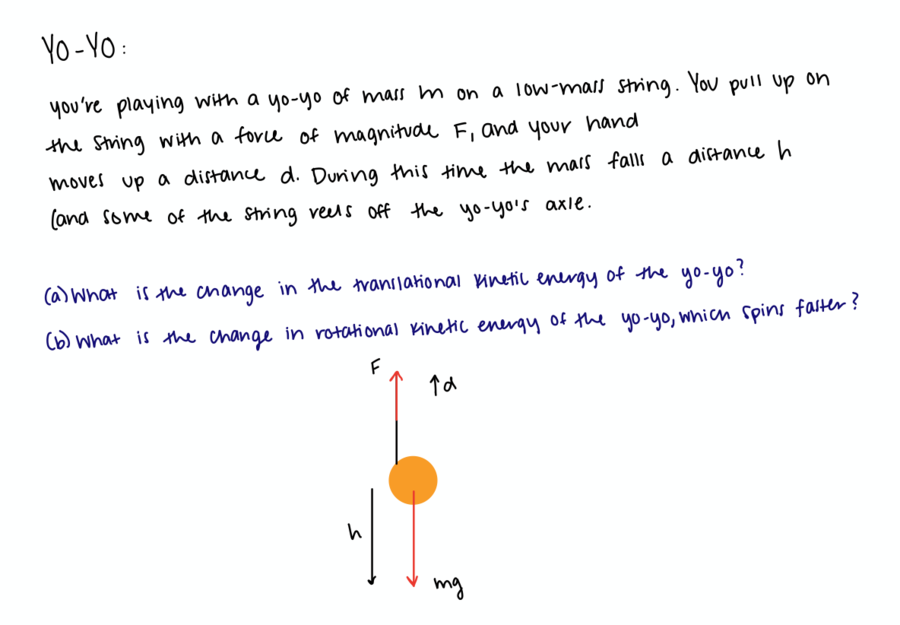 YO-YO:
you're playing with a yo-yo of mass m on a low-mass string. You pull up on
the string with a force of magnitude F, and your hand
moves up a distance d. During this time the mass falls a distance h
(and some of the string reels off the yo-yo's axle.
(a) What is the change in the translational kinetic energy of the yo-yo?
(b) What is the change in rotational kinetic energy of the yo-yo, which spins faster?
F
↑d
h
mg